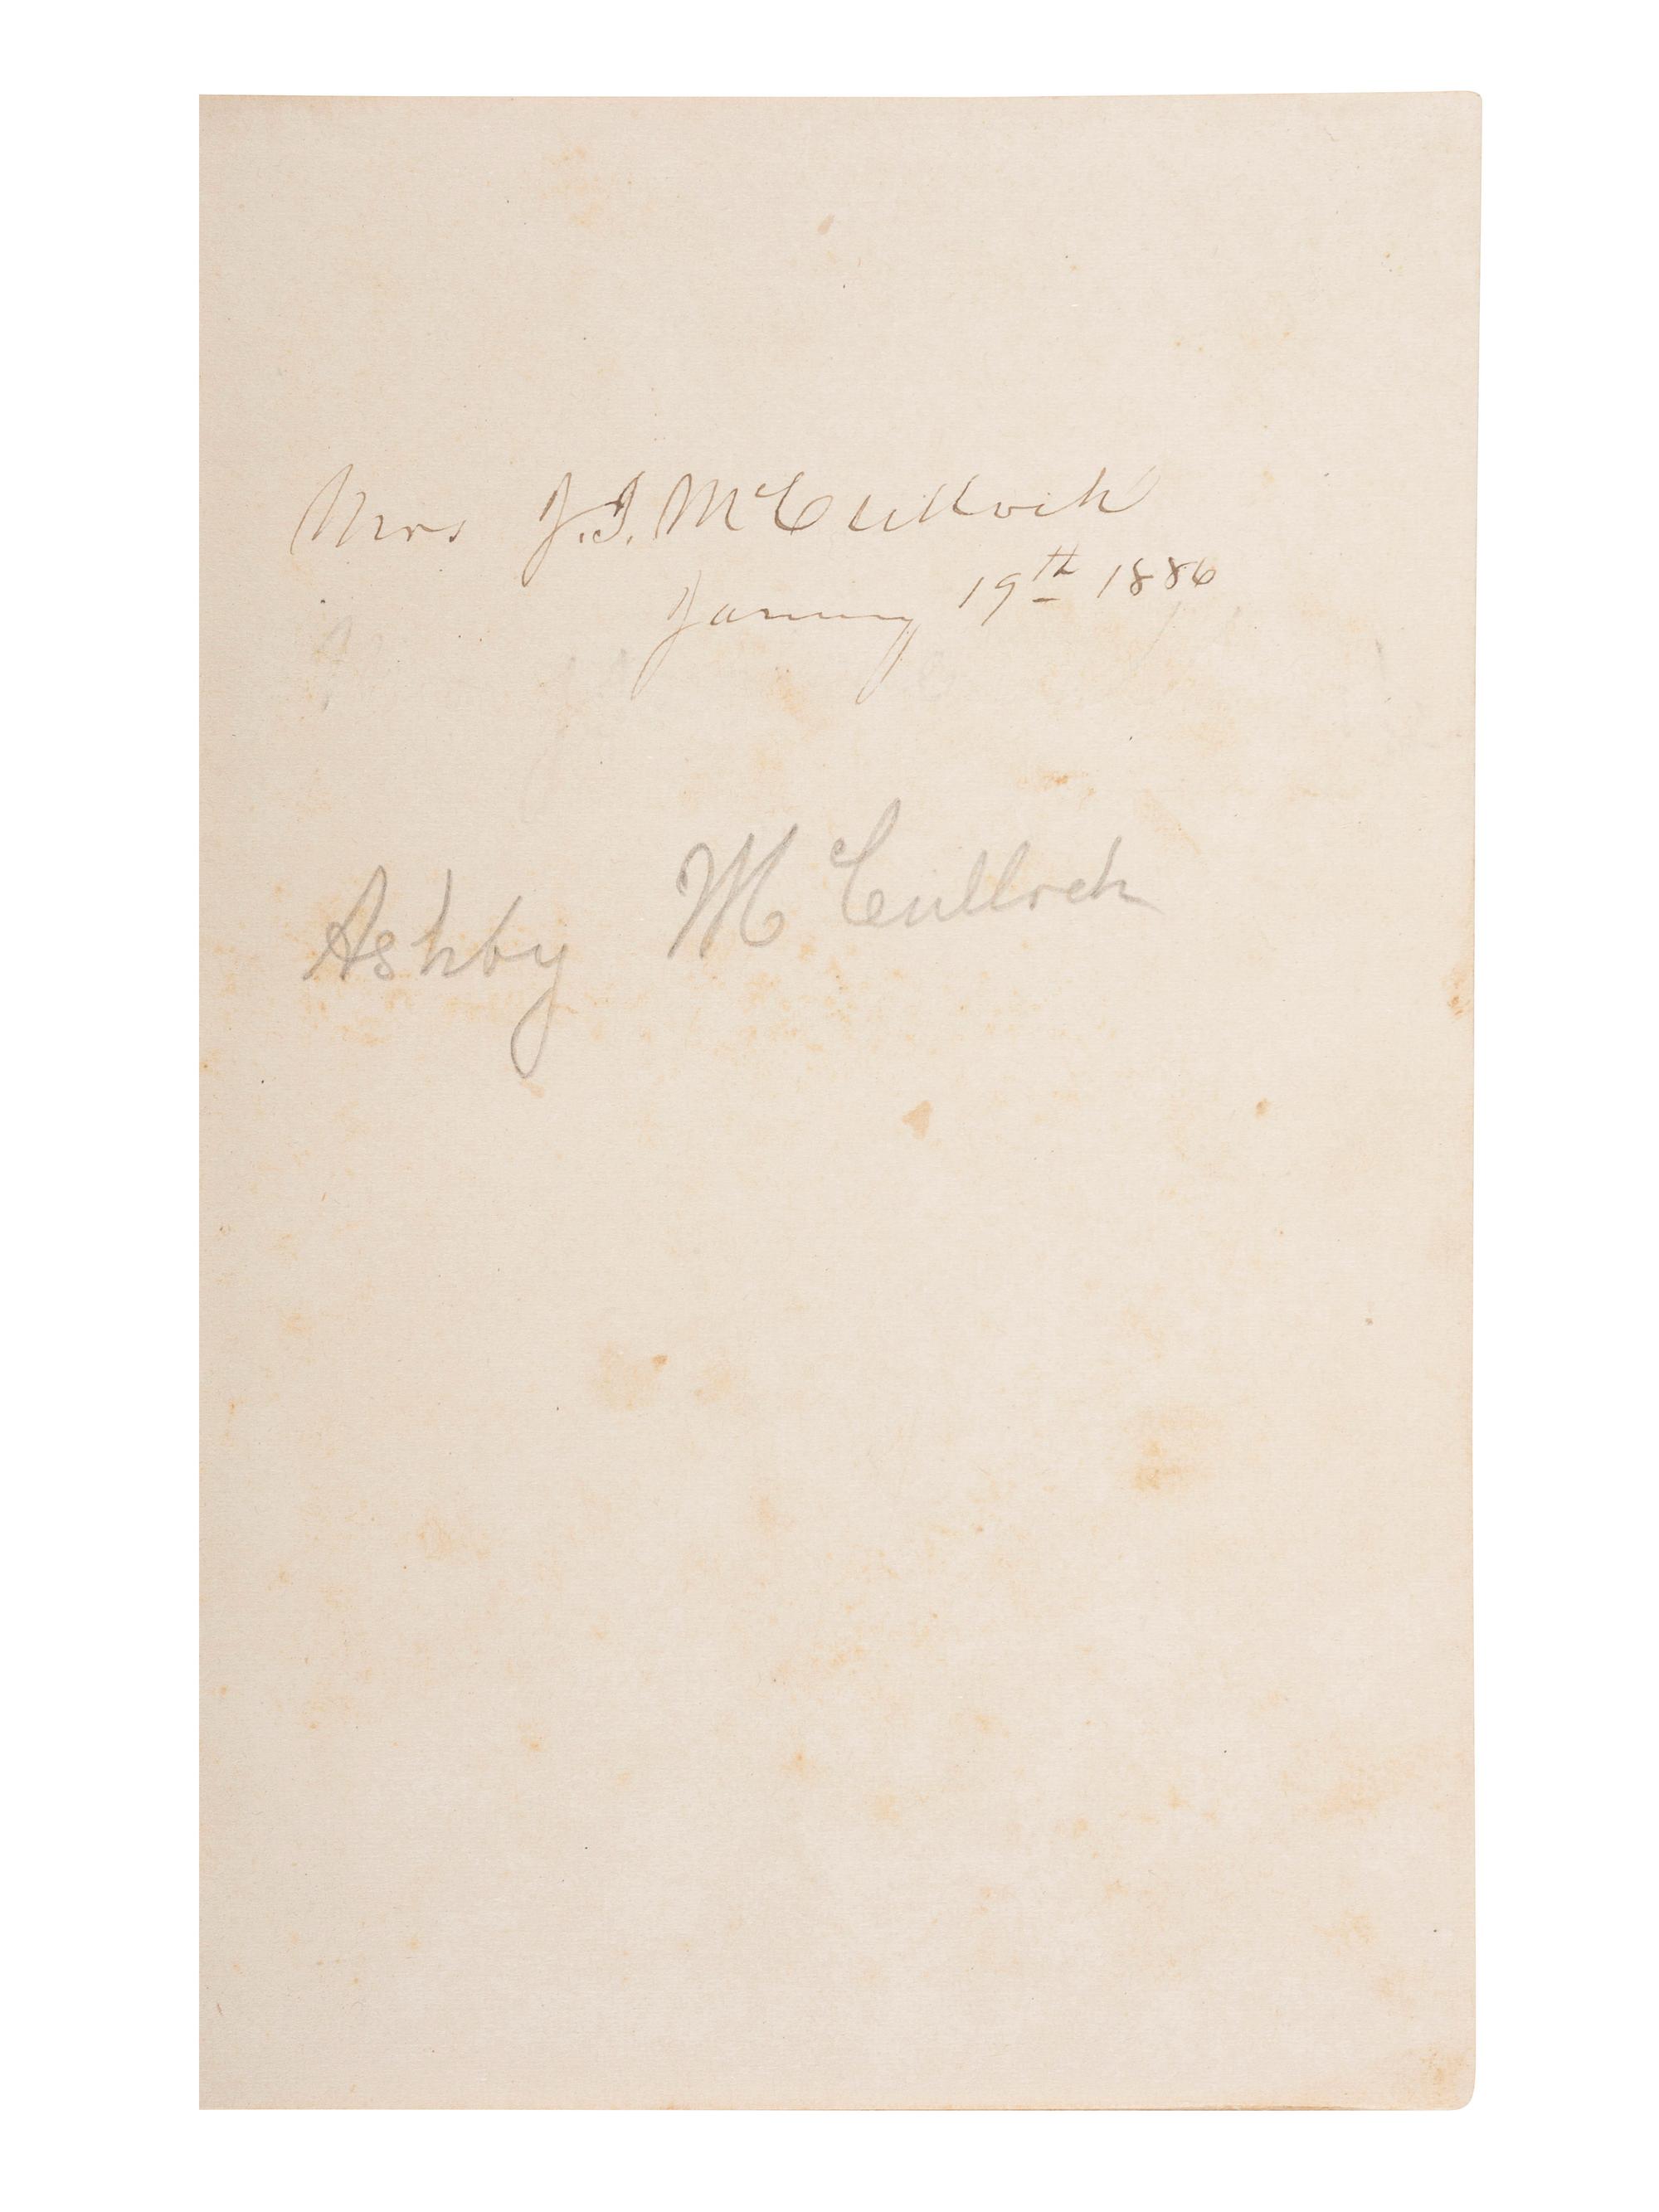 Mrs J.J. McCulloch
January 19th 1886
Ashby McCulloch